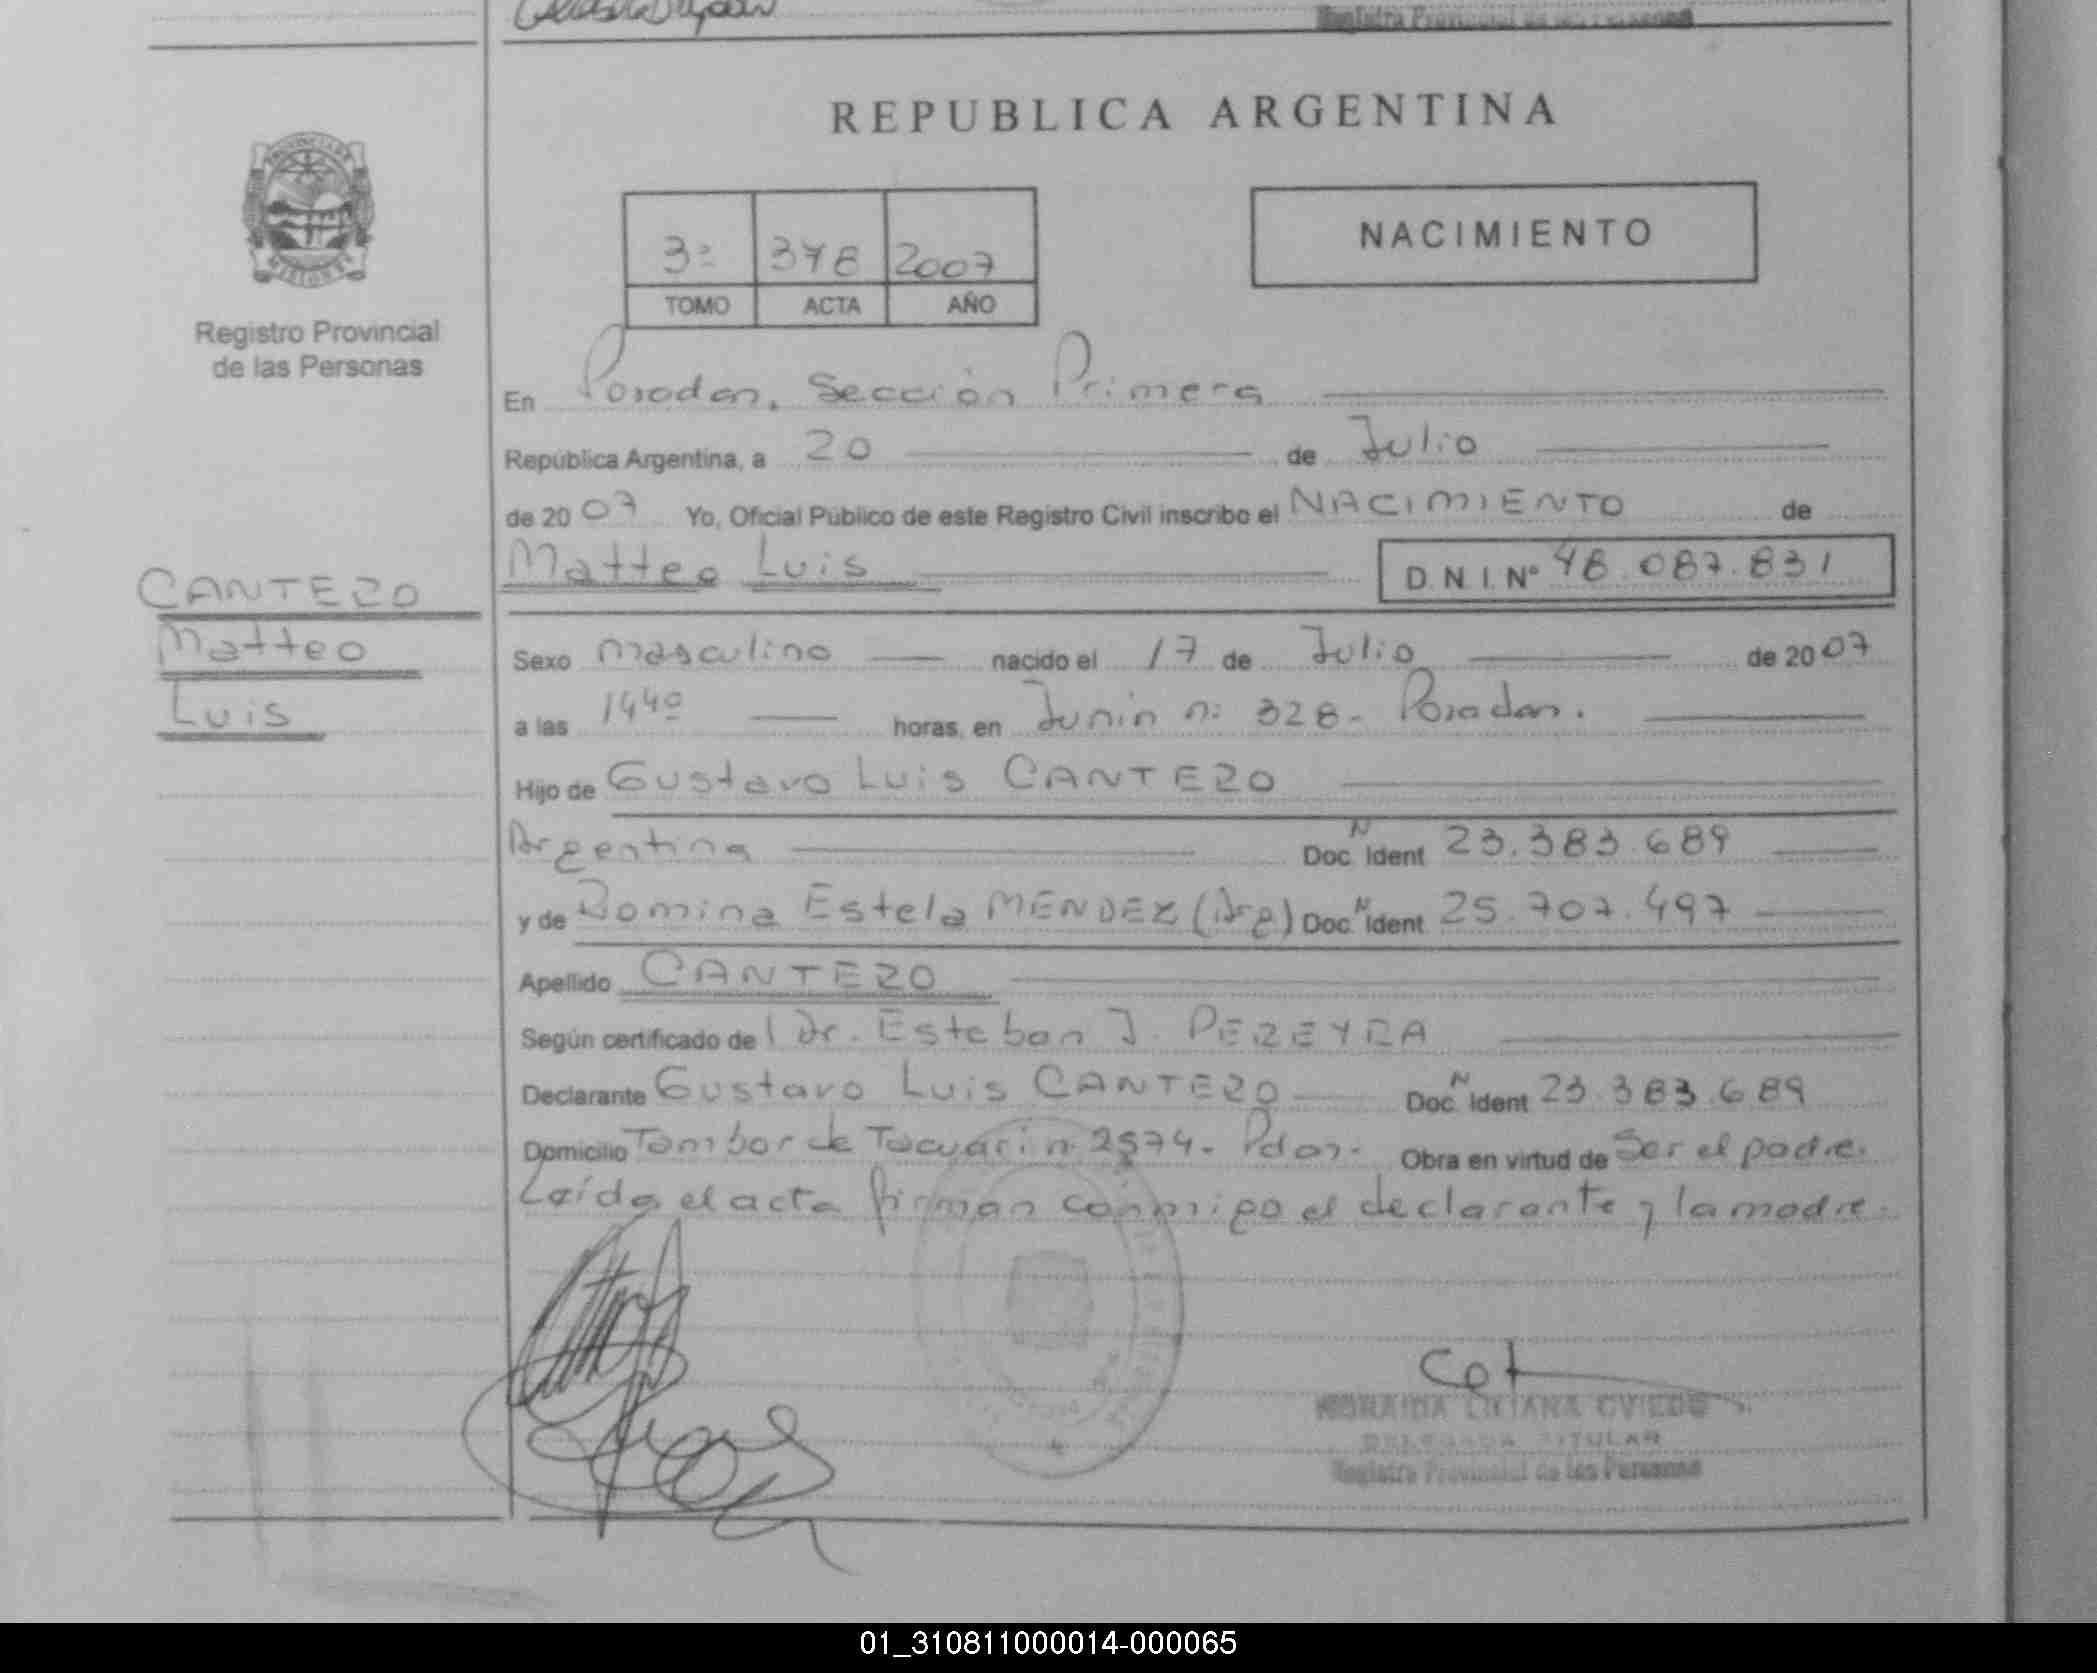 Registro Provincial de las Personas
REPUBLICA ARGENTINA
NACIMIENTO
3º 378 2007
TOMO ACTA AÑO
MISIONES
Registro Provincial
de las Personas
En Posadas, Sección Primera
República Argentina, a 20 de Julio
de 2007 Yo, Oficial Público de este Registro Civil inscribo el NACIMIENTO de
Matteo Luis D.N.I.Nº 48.087.831
CANTERO
Matteo
Luis
Sexo masculino nacido el 17 de Julio de 2007
a las 1440 horas, en Junin nº 328- Posadas.
Hijo de Gustavo Luis CANTERO
Argentina Doc N Ident 23.383.689
y de Romina Estela MENDEZ (Arg) Doc N Ident 25.707.497
Apellido CANTERO
Según certificado de l Dr. Esteban J. PEREYRA
Declarante Gustavo Luis CANTERO Doc N Ident 23.383.689
Domicilio Tambor de Tacuari nº 2574- Pdas- Obra en virtud de Ser el padre.
Leída el acta firman conmigo el declarante y la madre.
LILIANA OVIEDO
DELEGADA TITULAR
Registro Provincial de las Personas
01_310811000014-000065